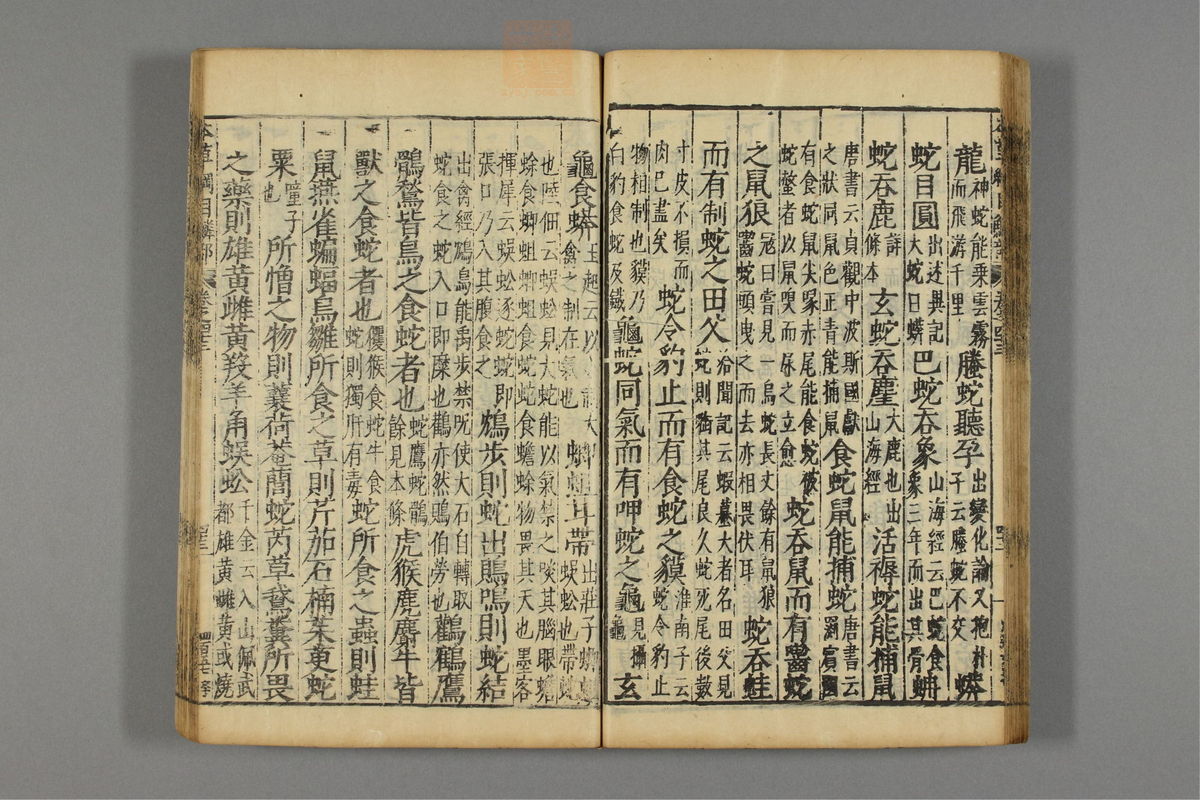 本草綱目鱗部 卷之四十三
龍神蛇能乘雲霧
而飛游千里
螣蛇聽孕出變化論又抱朴
子云螣蛇不交
蟒
蛇目圓出述異記
大蛇曰蟒
巴蛇吞象山海經云巴蛇食
象三年而出其骨
蚺
蛇吞鹿詳本條
玄蛇吞麈大鹿也出
山海經
活褥蛇能捕鼠
唐書云貞觀中波斯國獻
之狀同鼠色正青能捕鼠
食蛇鼠能捕蛇唐書云
罽賓國
有食蛇鼠尖喙赤尾能食蛇被
蛇螫者以鼠嗅而尿之立愈
蛇吞鼠而有嚙蛇
之鼠狼寇曰嘗見一烏蛇長丈餘有鼠狼
嚙蛇頭曳之而去亦相畏伏耳
蛇吞蛙
而有制蛇之田父洽聞記云蝦蟇大者名田父見
蛇則銜其尾良久蛇死尾後數
寸皮不損而
肉已盡矣
蛇令豹止而有食蛇之貘淮南子云
蛇令豹止
物相制也貘乃
白豹食蛇及鐵
龜蛇同氣而有呷蛇之龜見攝
龜
玄
龜食蟒王起云以
禽之制在氣也
蝍蛆甘帶出莊子蝍蛆
蜈蚣也帶蛇
也陸佃云蜈蚣見大蛇能以氣禁之啖其腦眼蟾
蜍食蝍蛆蝍蛆食蛇蛇食蟾蜍物畏其天也墨客
揮犀云蜈蚣逐蛇蛇即
張口乃入其腹食之
鴆步則蛇出鵙鳴則蛇結
出禽經鴆鳥能禹步禁呪使大石自轉取
蛇食之蛇入口即糜也鸛亦然鵙伯勞也
鸛鶴鷹
鶻鶖皆鳥之食蛇者也蛇鷹蛇鶻
餘見本條
虎猴麂麝牛皆
獸之食蛇者也玃猴食蛇牛食
蛇則獨肝有毒
蛇所食之蟲則蛙
鼠燕雀蝙蝠鳥雛所食之草則芹茄石楠茱萸蛇
粟瞳子
也
所憎之物則蘘荷菴䕡蛇芮草鵞糞所畏
之藥則雄黃雌黃羖羊角蜈蚣千金云入山佩武
都雄黃雌黃或燒
本草綱目鱗部 卷之四十三